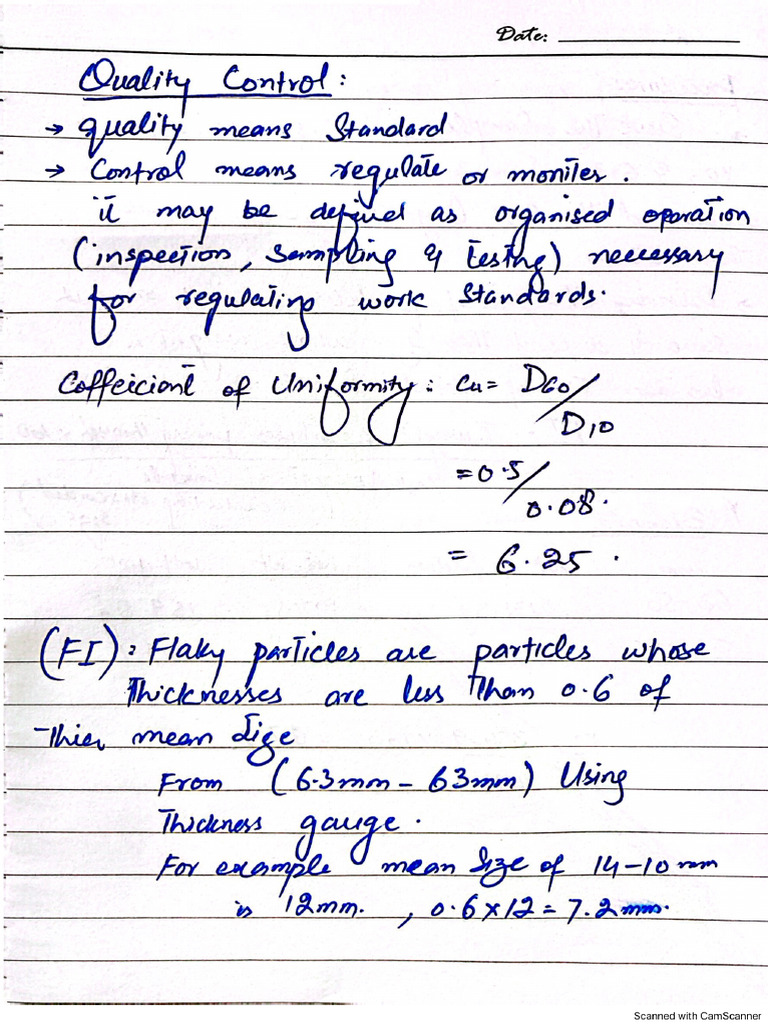 Date:
Quality Control:
→ quality means Standard
→ Control means regulate or moniter.
it may be defined as organised operation
(inspection, sampling & testing) neccessary
for regulating work standards.
Coffeiciant of Uniformity: Cu= D60/
D10
=0.5/
0.08.
= 6.25.
(FI): Flaky particles are particles whose
Thicknesses are less Than 0.6 of
Thier mean size
From (6.3mm - 63mm) Using
Thickness gauge.
For example mean size of 14-10 mm
is 12mm., 0.6×12=7.2mm.
Scanned with CamScanner